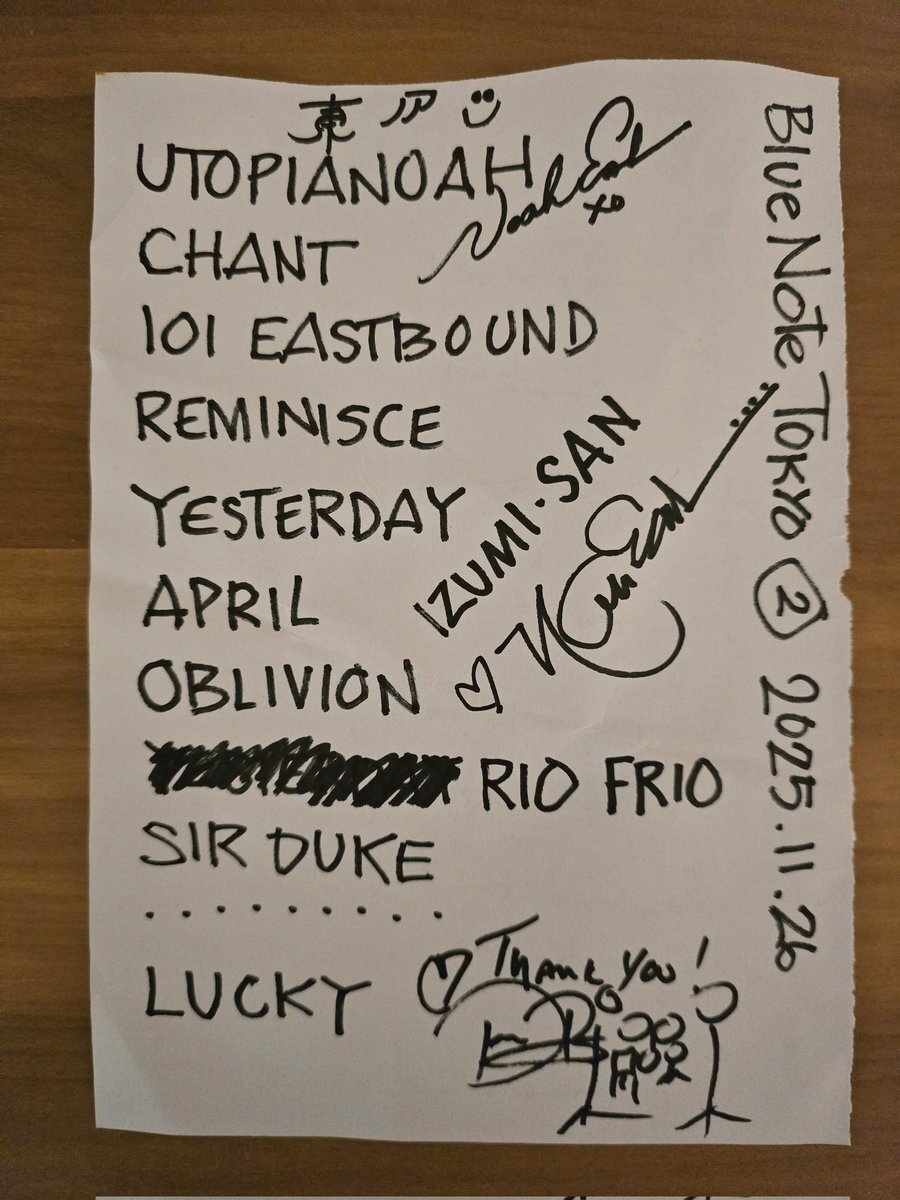 東 ノア
UTOPIANOAH
Noah East
xo
CHANT
101 EASTBOUND
REMINISCE
YESTERDAY
APRIL
OBLIVION
IZUMI・SAN
RIO FRIO
SIR DUKE
.........
LUCKY
THANK YOU!
Blue Note TOKYO ② 2025.11.26